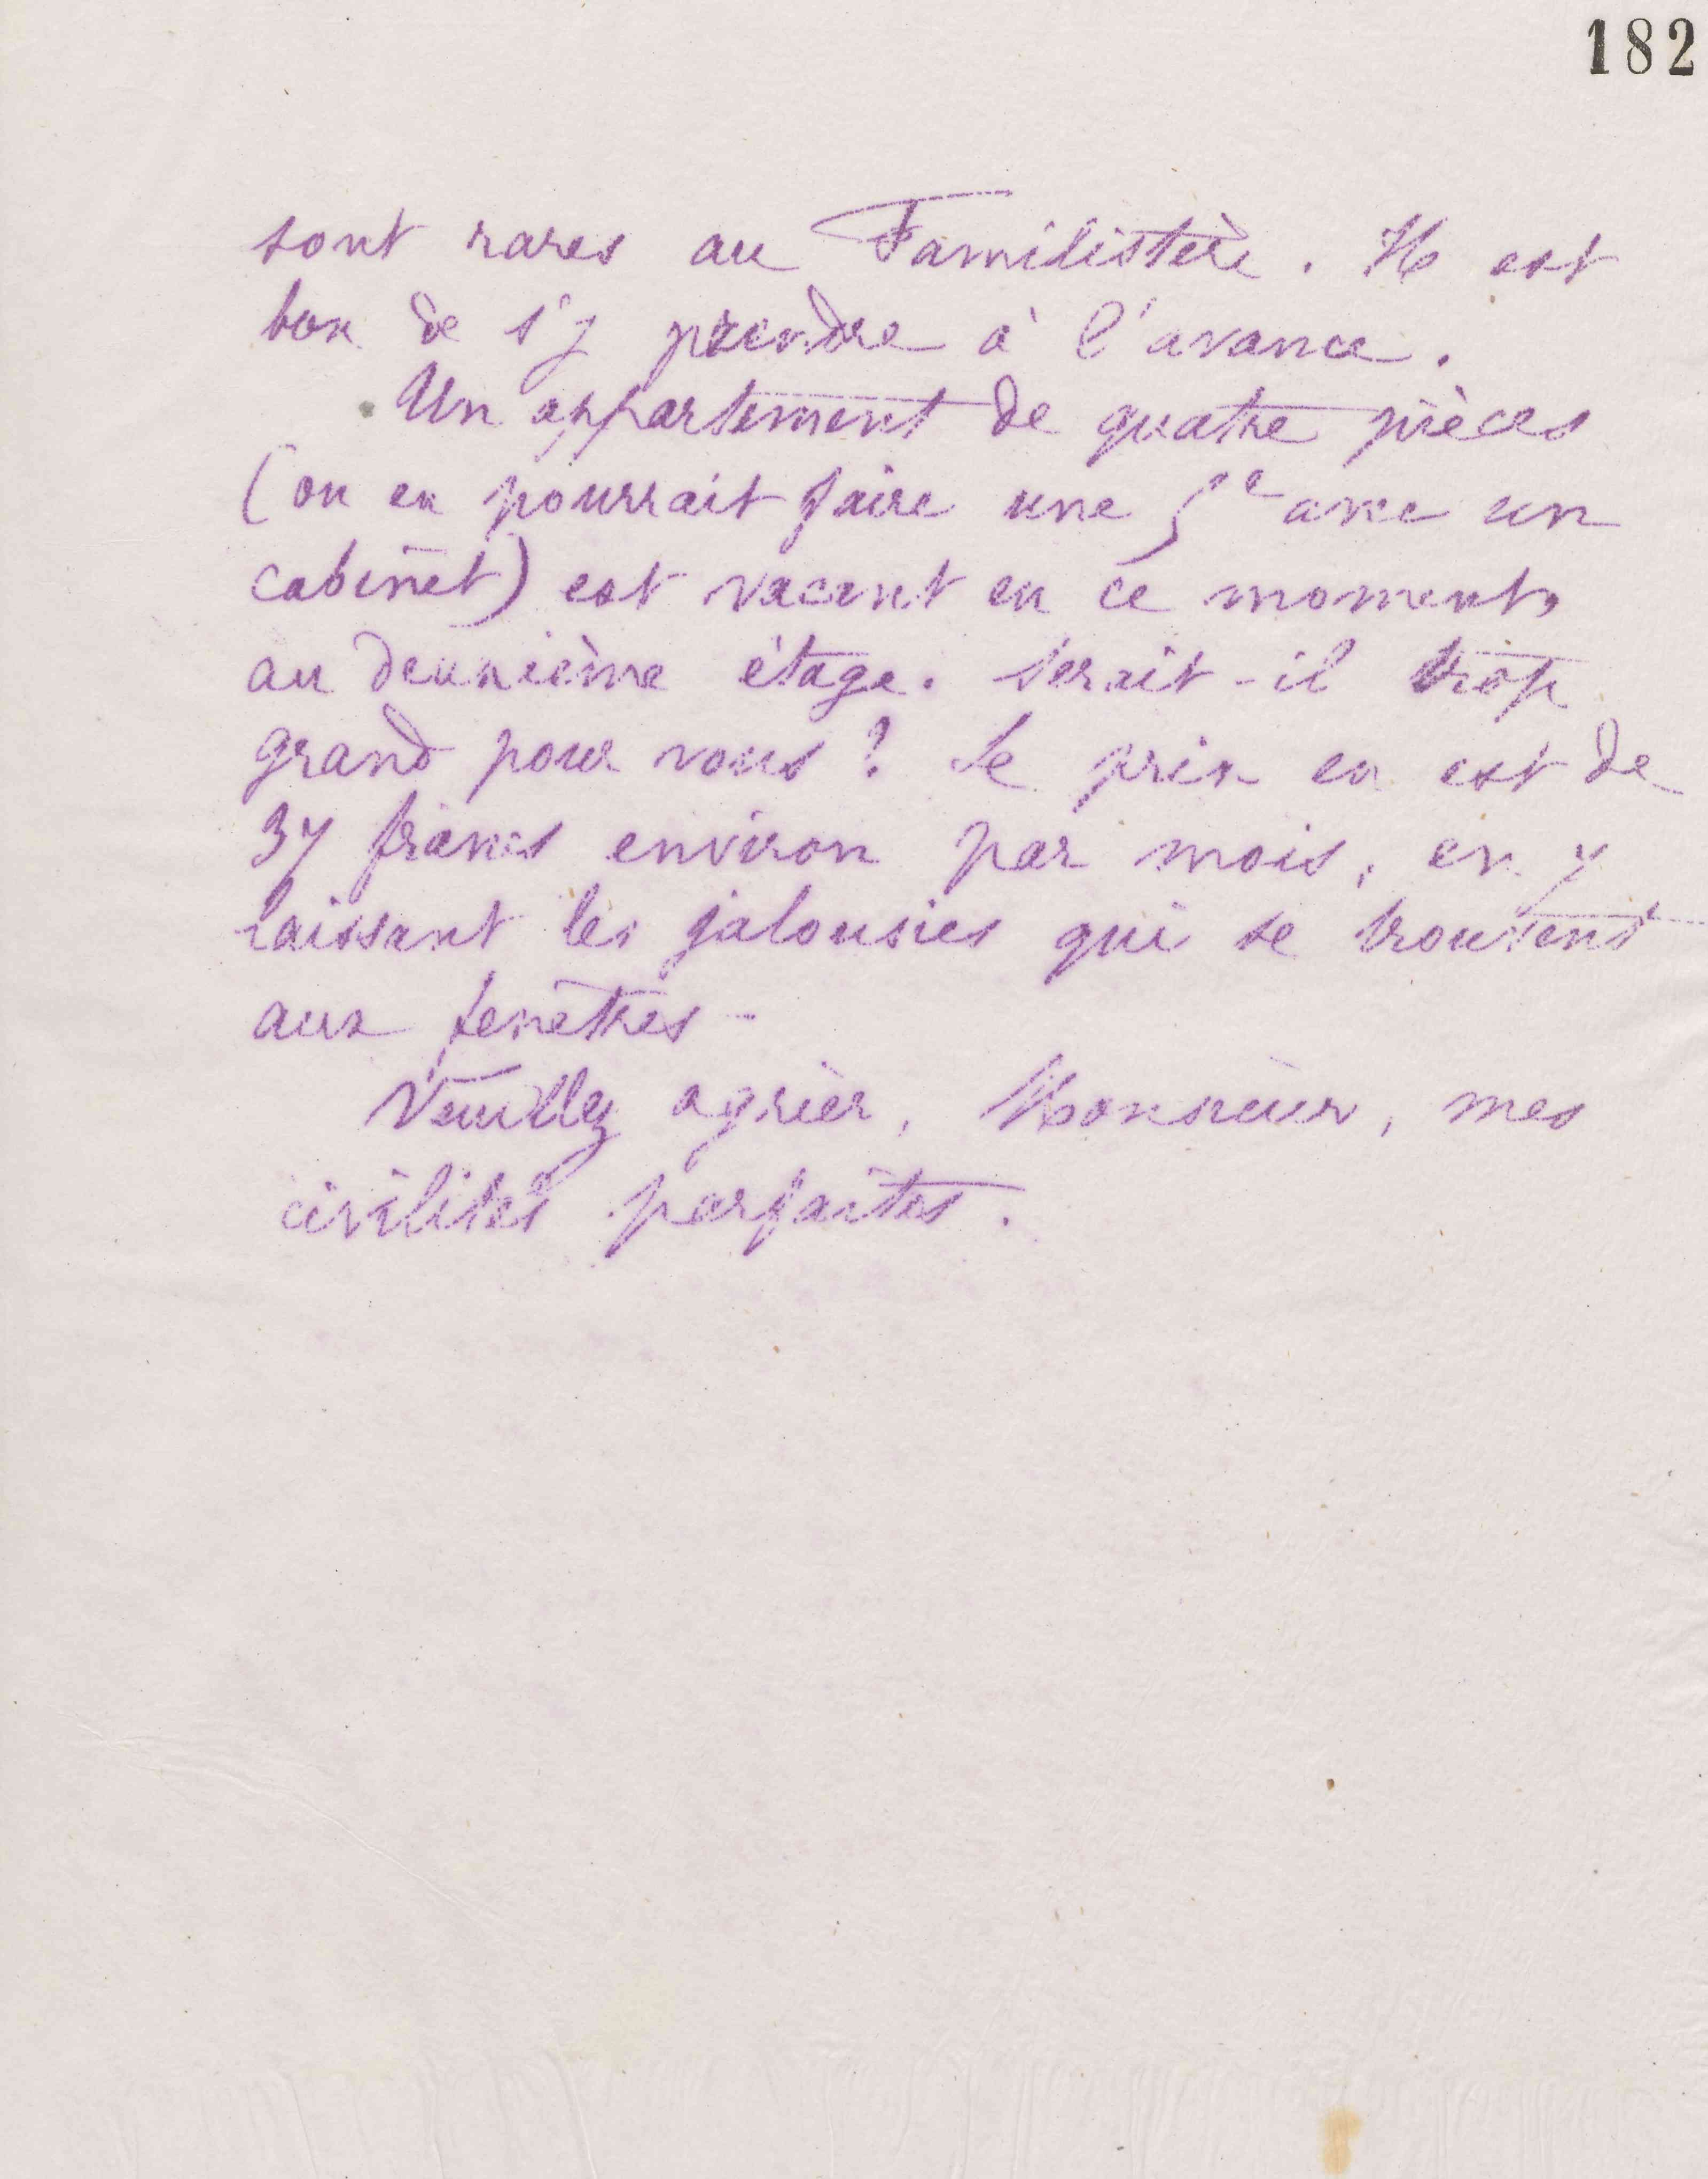 182
sont rares au Familistère. Il est
bon de s'y prendre à l'avance.
Un appartement de quatre pièces
(on en pourrait faire une 5e avec un
cabinet) est vacant en ce moment,
au deuxième étage. Serait-il trop
grand pour vous ? Le prix en est de
37 francs environ par mois, en y
laissant les jalousies qui se trouvent
aux fenêtres -
Veuillez agréer, Monsieur, mes
civilités parfaites.